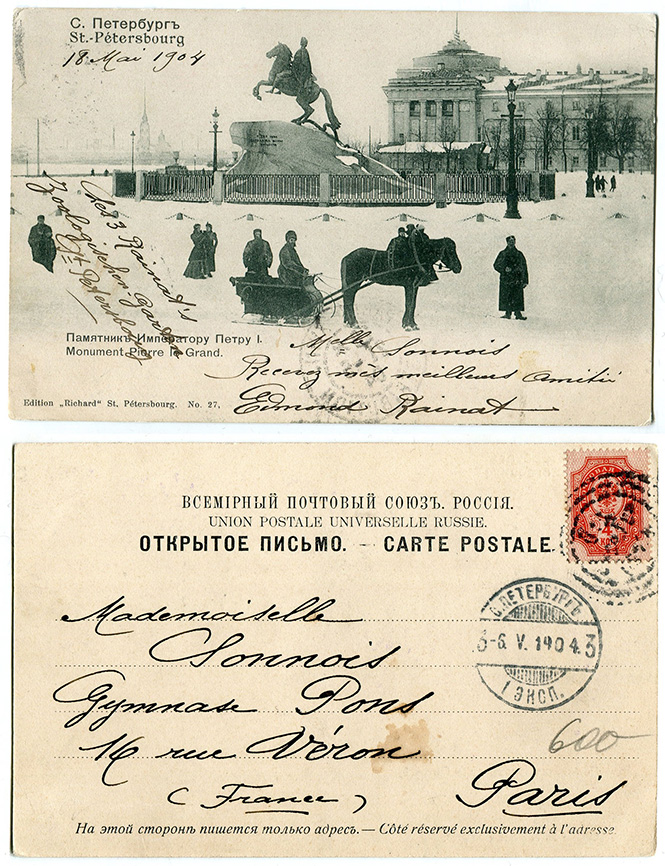 С. Петербургъ
St.-Pétersbourg
18 Mai 1904
Les 3 Rainat's
Zoologischer Garten
St Petersburg
Памятникъ Императору Петру I.
Monument Pierre le Grand.
Melle Sonnois
Recevez mes meilleurs Amitié
Edmond Rainat
Edition „Richard“ St. Pétersbourg. No. 27.
ВСЕМІРНЫЙ ПОЧТОВЫЙ СОЮЗЪ. РОССІЯ.
UNION POSTALE UNIVERSELLE RUSSIE.
ОТКРЫТОЕ ПИСЬМО. – CARTE POSTALE.
С. ПЕТЕРБУРГЪ
3 -6. V. 1904. 3
I ЭКСП.
Mademoiselle
Sonnois
Gymnase Pons
16 rue Véron
(France) Paris
600
На этой сторонѣ пишется только адресъ. — Côté réservé exclusivement à l'adresse.